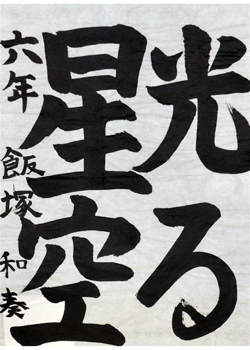 光る
星空
六年 飯塚 和奏